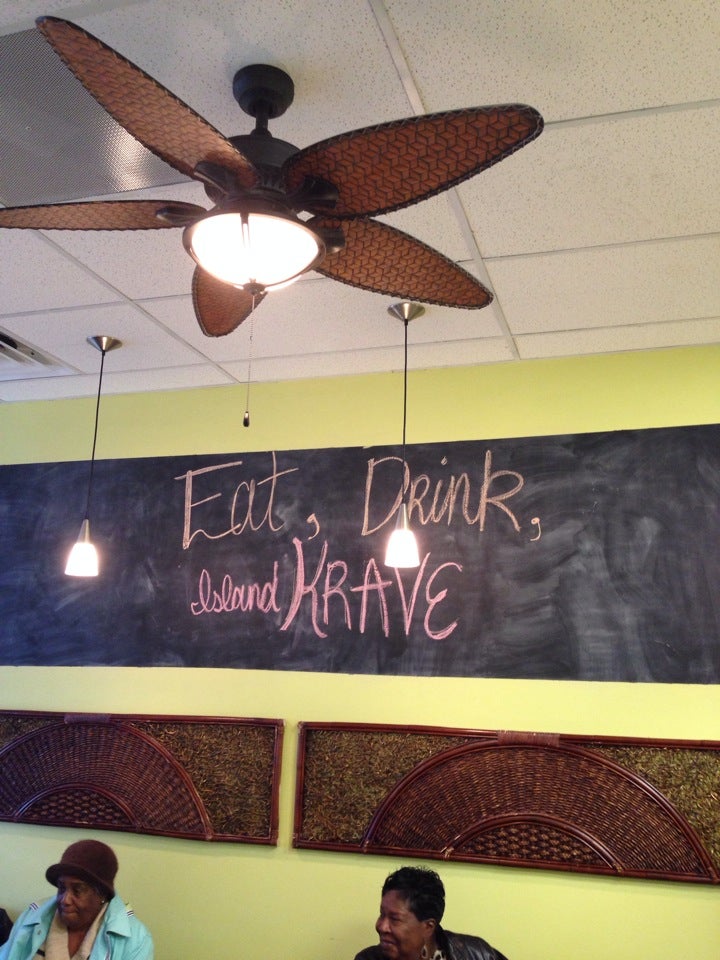 Eat, Drink,
Island KRAVE